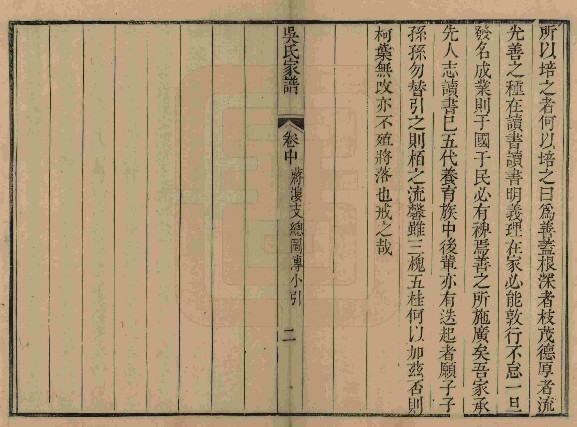 所以培之者何以培之曰為善蓋根深者枝茂德厚者流
光善之種在讀書讀書明義理在家必能敦行不怠一旦
發名成業則于國于民必有裨焉善之所施廣矣吾家承
先人志讀書已五代養育族中後軰亦有迭起者願子子
孫孫勿替引之則栢之流馨雖三槐五桂何以加茲否則
柯葉無改亦不殖將落也戒之哉
吳氏家譜
卷中
蔣漊支總圖傳小引
二